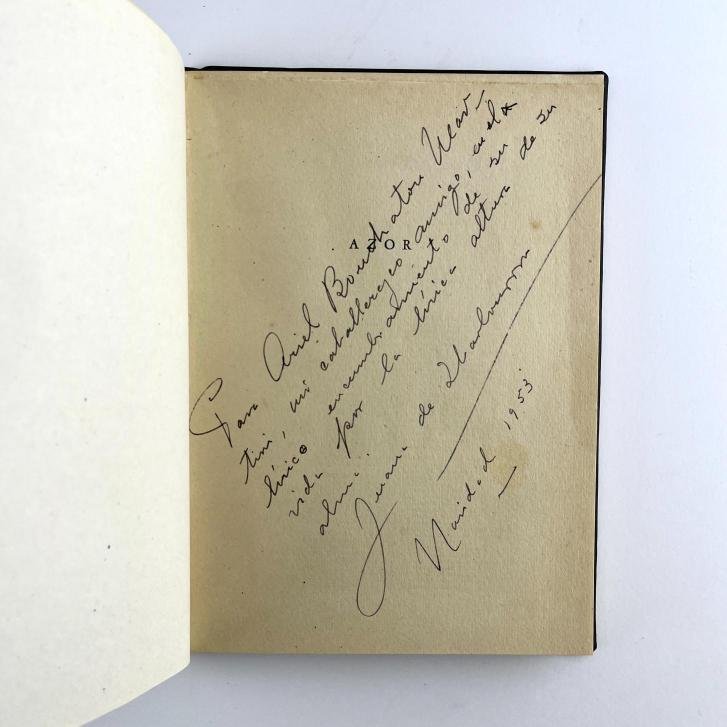 AZOR
Para Ariel Bouchaton Mar-
tini, mi caballerezco amigo, en el
lírico encumbramiento de su
vida por la lírica altura de su
alma.
Juana de Ibarbourou
Navidad 1953